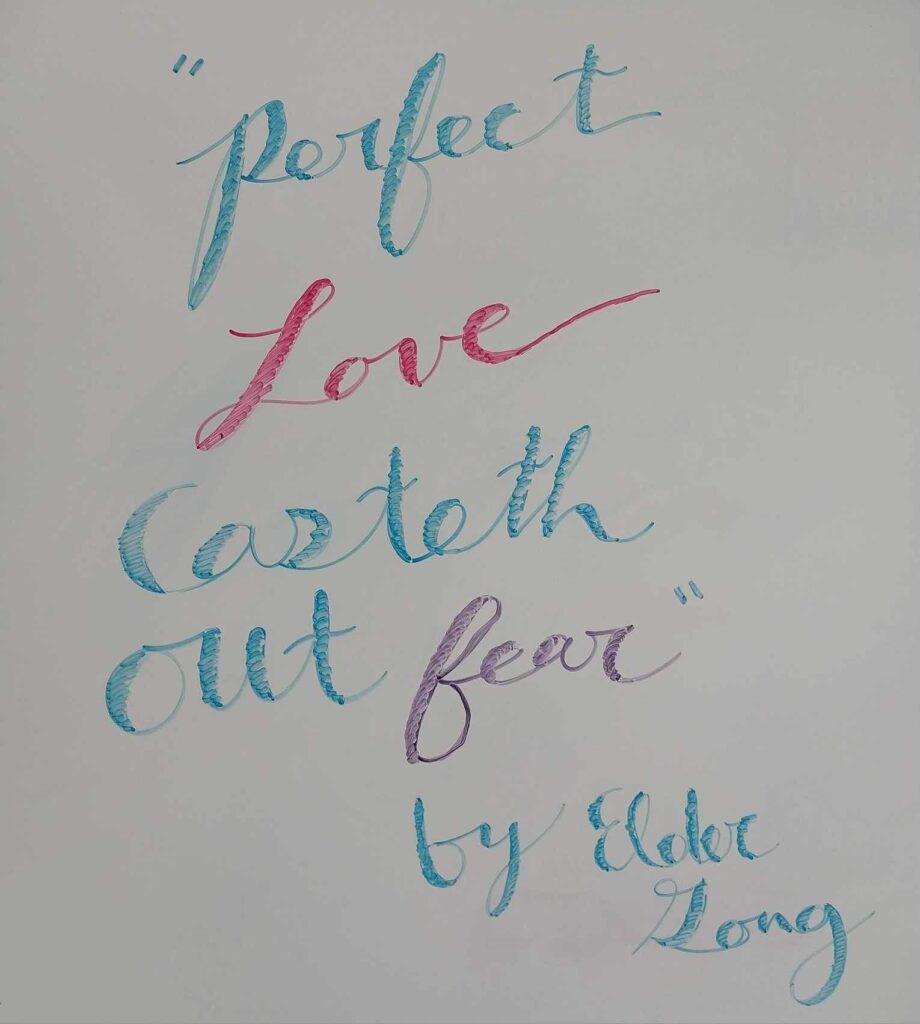 "Perfect
Love
Casteth
out fear"
by Elder
Gong